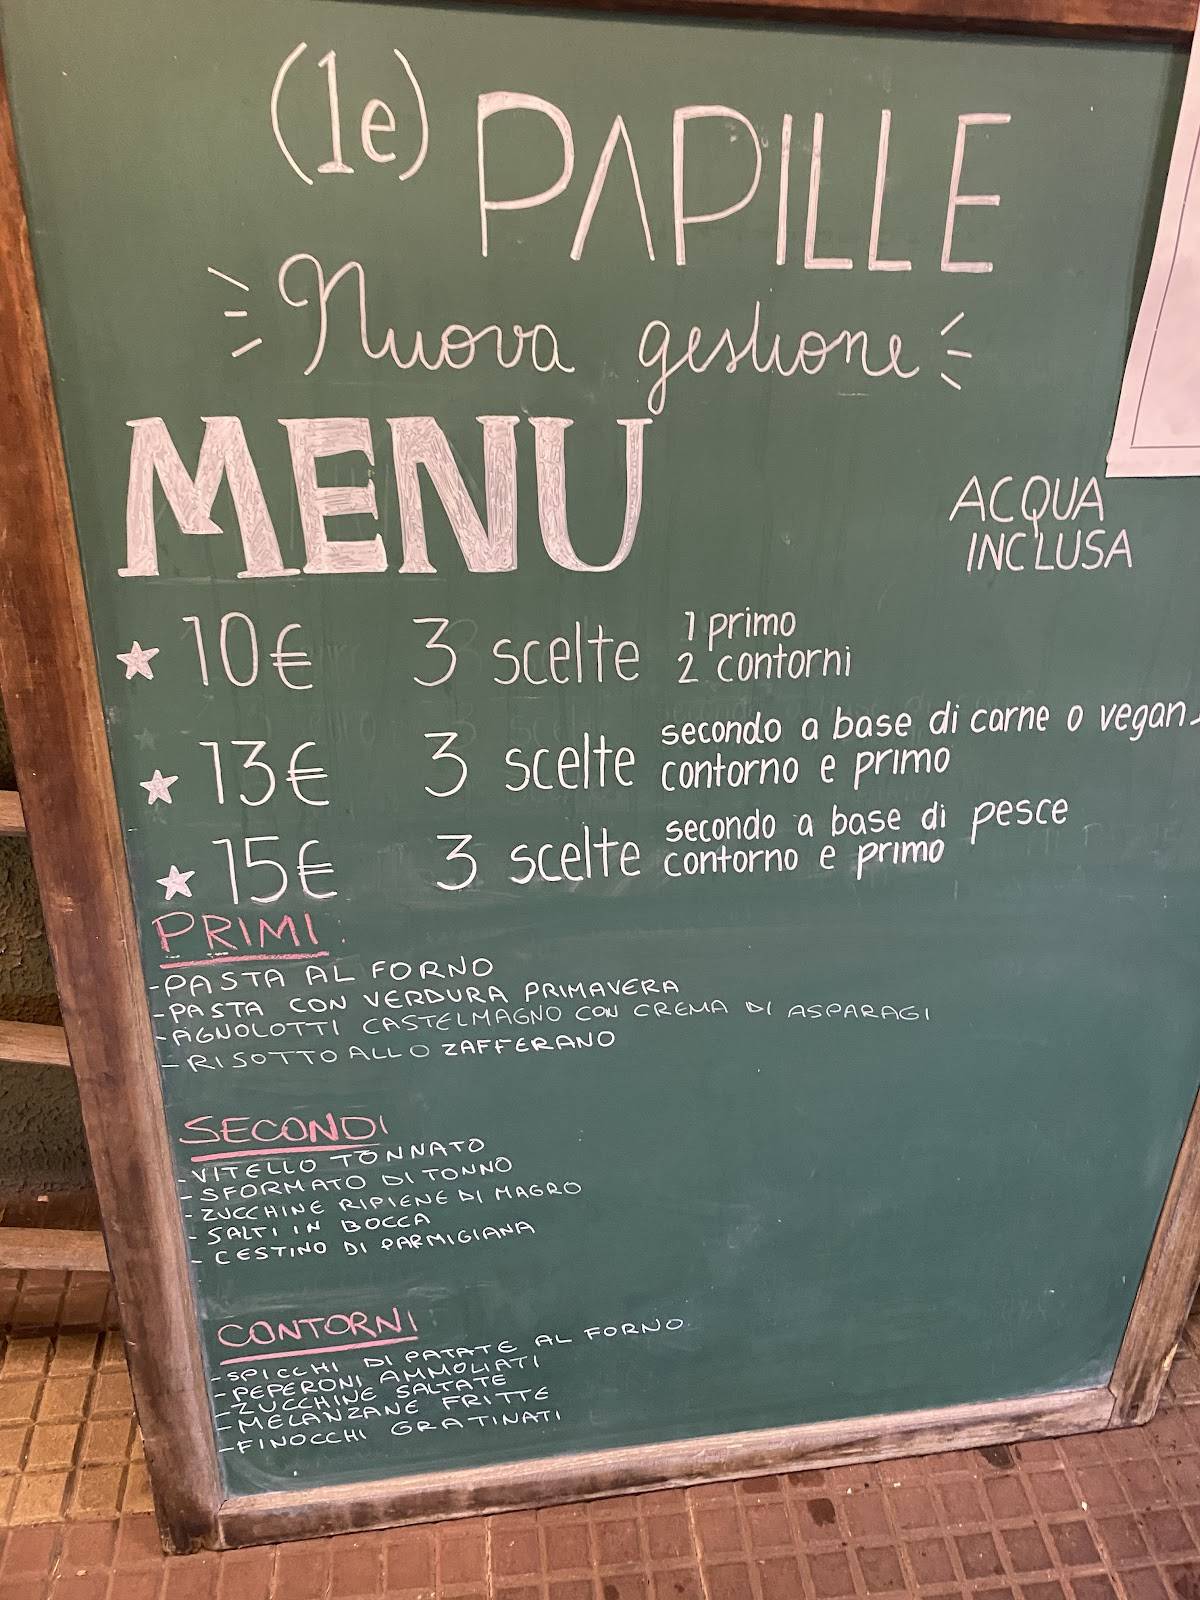 (1e) PAPILLE
Nuova gestione
MENU
ACQUA
INCLUSA
10€ 3 scelte 1 primo
2 contorni
13€ 3 scelte secondo a base di carne o vegan
contorno e primo
15€ 3 scelte secondo a base di pesce
contorno e primo
PRIMI
- PASTA AL FORNO
- PASTA CON VERDURA PRIMAVERA
- AGNOLOTTI CASTELMAGNO CON CREMA DI ASPARAGI
- RISOTTO ALLO ZAFFERANO
SECONDI
- VITELLO TONNATO
- SFORMATO DI TONNO
- ZUCCHINE RIPIENE DI MAGRO
- SALTI IN BOCCA
- CESTINO DI PARMIGIANA
CONTORNI
- SPICCHI DI PATATE AL FORNO
- PEPERONI AMMOLIATI
- ZUCCHINE SALTATE
- MELANZANE FRITTE
- FINOCCHI GRATINATI